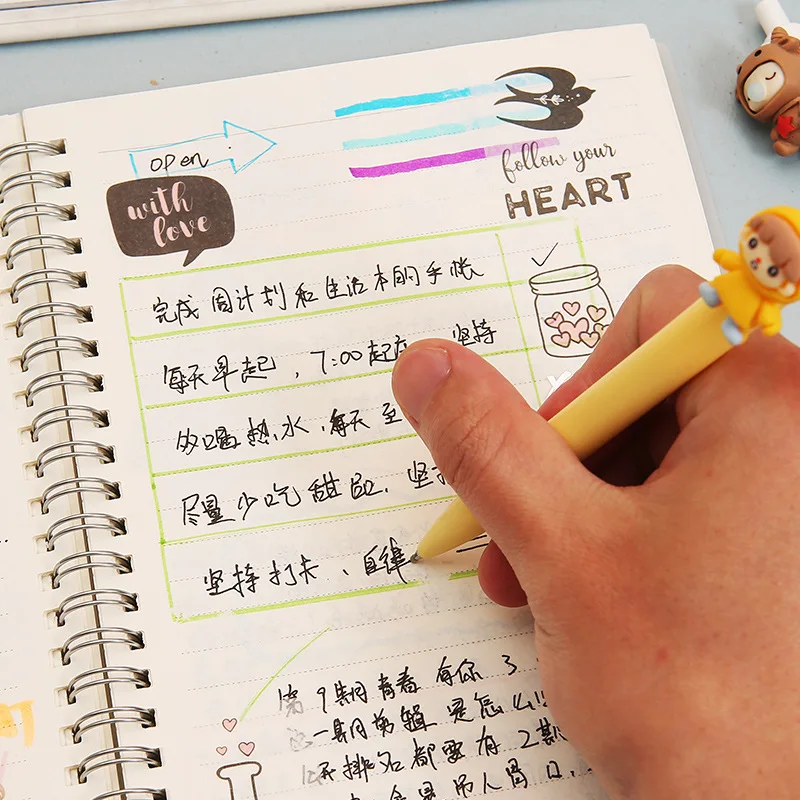 open
with
love
follow your
HEART
完成周计划和生活本的手帐
每天早起，7:00起 坚持
多喝热水，每天至
尽量少吃甜品，坚
坚持打卡、自律
第9期青春有你3
一期剪辑是怎么
排名都要有2